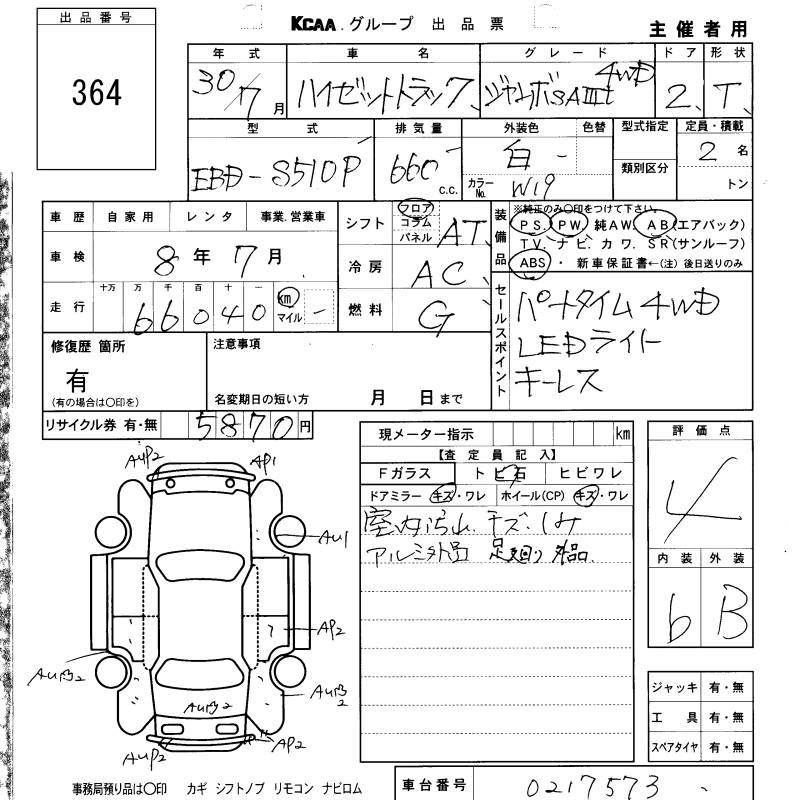 KCAA.グループ 出品票
主催者用
出品番号
364
年式 車名 グレード ドア 形状
30/7月 ハイゼットトラック ジャンボSAⅢt 4WD 2 T
型式 排気量 外装色 色替 型式指定 定員・積載
EBD-S510P 660 c.c. 白 - 類別区分 2名
カラーNo. W19 トン
車歴 自家用 レンタ 事業.営業車
車検 8年7月
走行 十万 万 千 百 十 一
66040 km マイル -
シフト フロア コラム パネル AT
冷房 AC
燃料 G
装備品
※純正のみ〇印をつけて下さい。
PS. PW. 純AW. AB.(エアバック)
TV. ナビ. カワ. SR(サンルーフ)
ABS ・ 新車保証書←(注) 後日送りのみ
セールスポイント
パートタイム4WD
LEDライト
キーレス
修復歴 箇所
有
(有の場合は〇印を)
注意事項
名変期日の短い方 月 日まで
リサイクル券 有・無 5870円
現メーター指示 km
【査定員記入】
Fガラス トビ石 ヒビワレ
ドアミラー キズ・ワレ ホイール(CP) キズ・ワレ
室内汚れ.キズ.
アルミ外品 足廻り 外品.
評価点
4
内装 外装
6 B
AUP2 AP1
AU1
AP2
AUB2
AUB2
AUB2
AUP2 AP2
ジャッキ 有・無
工具 有・無
スペアタイヤ 有・無
事務局預り品は〇印 カギ シフトノブ リモコン ナビロム
車台番号 0217573